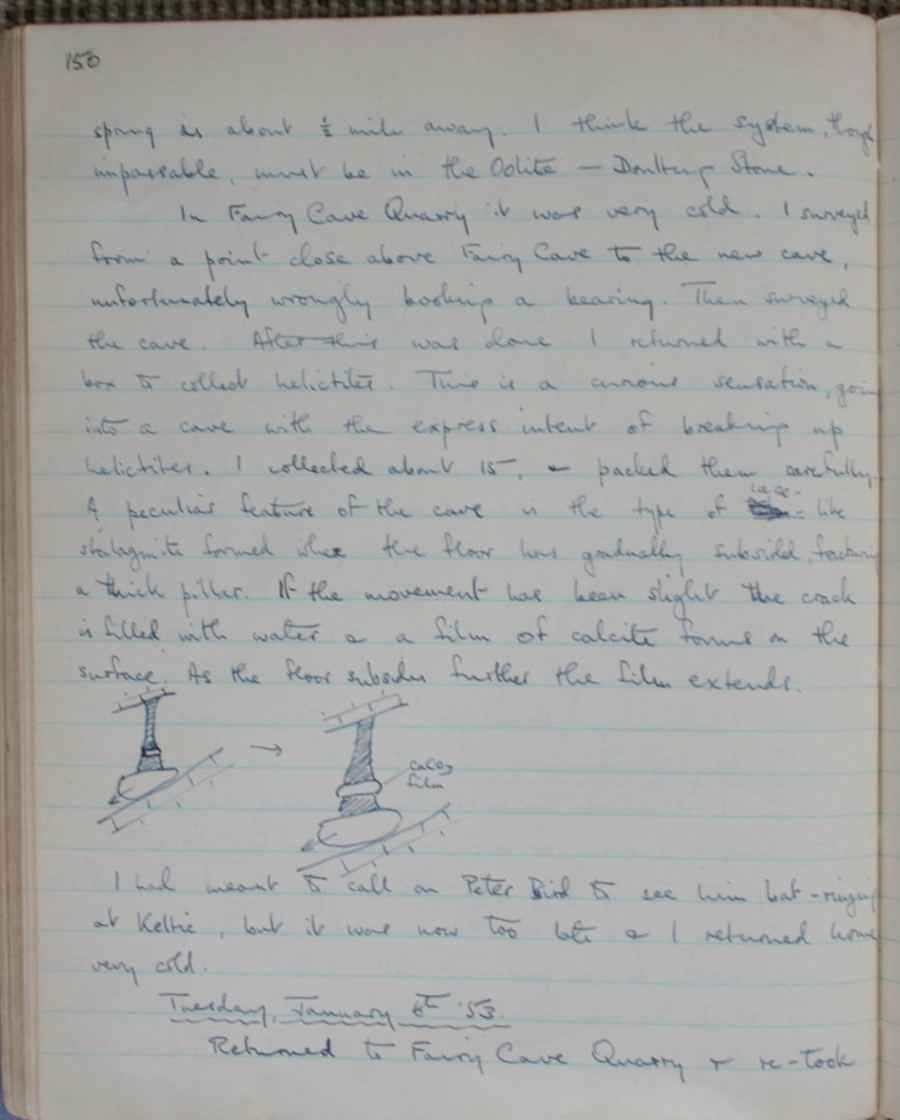 150
spring is about ½ mile away. I think the system, though
impassable, must be in the Oolite — Doulting Stone.
In Fairy Cave Quarry it was very cold. I surveyed
from a point close above Fairy Cave to the new cave,
unfortunately wrongly booking a bearing. Then surveyed
the cave. After this was done I returned with a
box to collect helictites. This is a curious sensation, going
into a cave with the express intent of breaking up
helictites. I collected about 15, & packed them carefully
A peculiar feature of the cave is the type of -like
stalagmite formed where the floor has gradually subsided, fracturing
a thick pillar. If the movement has been slight the crack
is filled with water & a film of calcite forms on the
surface. As the floor subsides further the film extends.
CaCO3
film
I had meant to call on Peter Bird to see him bat-ringing
at , but it was now too late & I returned home
very cold.
Tuesday, January 6th '53.
Returned to Fairy Cave Quarry & re-took